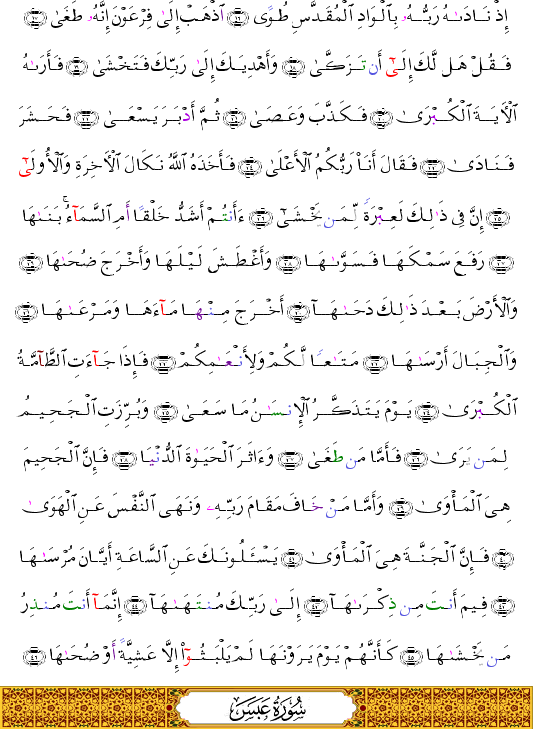 إِذْ نَادَىٰهُ رَبُّهُۥ بِٱلْوَادِ ٱلْمُقَدَّسِ طُوًى ۝١٦ ٱذْهَبْ إِلَىٰ فِرْعَوْنَ إِنَّهُۥ طَغَىٰ ۝١٧
فَقُلْ هَل لَّكَ إِلَىٰٓ أَن تَزَكَّىٰ ۝١٨ وَأَهْدِيَكَ إِلَىٰ رَبِّكَ فَتَخْشَىٰ ۝١٩ فَأَرَىٰهُ
ٱلْـَٔايَةَ ٱلْكُبْرَىٰ ۝٢٠ فَكَذَّبَ وَعَصَىٰ ۝٢١ ثُمَّ أَدْبَرَ يَسْعَىٰ ۝٢٢ فَحَشَرَ
فَنَادَىٰ ۝٢٣ فَقَالَ أَنَا۠ رَبُّكُمُ ٱلْأَعْلَىٰ ۝٢٤ فَأَخَذَهُ ٱللَّهُ نَكَالَ ٱلْـَٔاخِرَةِ وَٱلْأُولَىٰٓ
۝٢٥ إِنَّ فِى ذَٰلِكَ لَعِبْرَةً لِّمَن يَخْشَىٰٓ ۝٢٦ ءَأَنتُمْ أَشَدُّ خَلْقًا أَمِ ٱلسَّمَآءُ ۚ بَنَىٰهَا
۝٢٧ رَفَعَ سَمْكَهَا فَسَوَّىٰهَا ۝٢٨ وَأَغْطَشَ لَيْلَهَا وَأَخْرَجَ ضُحَىٰهَا ۝٢٩
وَٱلْأَرْضَ بَعْدَ ذَٰلِكَ دَحَىٰهَآ ۝٣٠ أَخْرَجَ مِنْهَا مَآءَهَا وَمَرْعَىٰهَا ۝٣١
وَٱلْجِبَالَ أَرْسَىٰهَا ۝٣٢ مَتَٰعًا لَّكُمْ وَلِأَنْعَٰمِكُمْ ۝٣٣ فَإِذَا جَآءَتِ ٱلطَّآمَّةُ
ٱلْكُبْرَىٰ ۝٣٤ يَوْمَ يَتَذَكَّرُ ٱلْإِنسَٰنُ مَا سَعَىٰ ۝٣٥ وَبُرِّزَتِ ٱلْجَحِيمُ
لِمَن يَرَىٰ ۝٣٦ فَأَمَّا مَن طَغَىٰ ۝٣٧ وَءَاثَرَ ٱلْحَيَوٰةَ ٱلدُّنْيَا ۝٣٨ فَإِنَّ ٱلْجَحِيمَ
هِىَ ٱلْمَأْوَىٰ ۝٣٩ وَأَمَّا مَنْ خَافَ مَقَامَ رَبِّهِۦ وَنَهَى ٱلنَّفْسَ عَنِ ٱلْهَوَىٰ
۝٤٠ فَإِنَّ ٱلْجَنَّةَ هِىَ ٱلْمَأْوَىٰ ۝٤١ يَسْـَٔلُونَكَ عَنِ ٱلسَّاعَةِ أَيَّانَ مُرْسَىٰهَا
۝٤٢ فِيمَ أَنتَ مِن ذِكْرَىٰهَآ ۝٤٣ إِلَىٰ رَبِّكَ مُنتَهَىٰهَآ ۝٤٤ إِنَّمَآ أَنتَ مُنذِرُ
مَن يَخْشَىٰهَا ۝٤٥ كَأَنَّهُمْ يَوْمَ يَرَوْنَهَا لَمْ يَلْبَثُوٓا۟ إِلَّا عَشِيَّةً أَوْ ضُحَىٰهَا ۝٤٦
سُورَةُ عَبَسَ